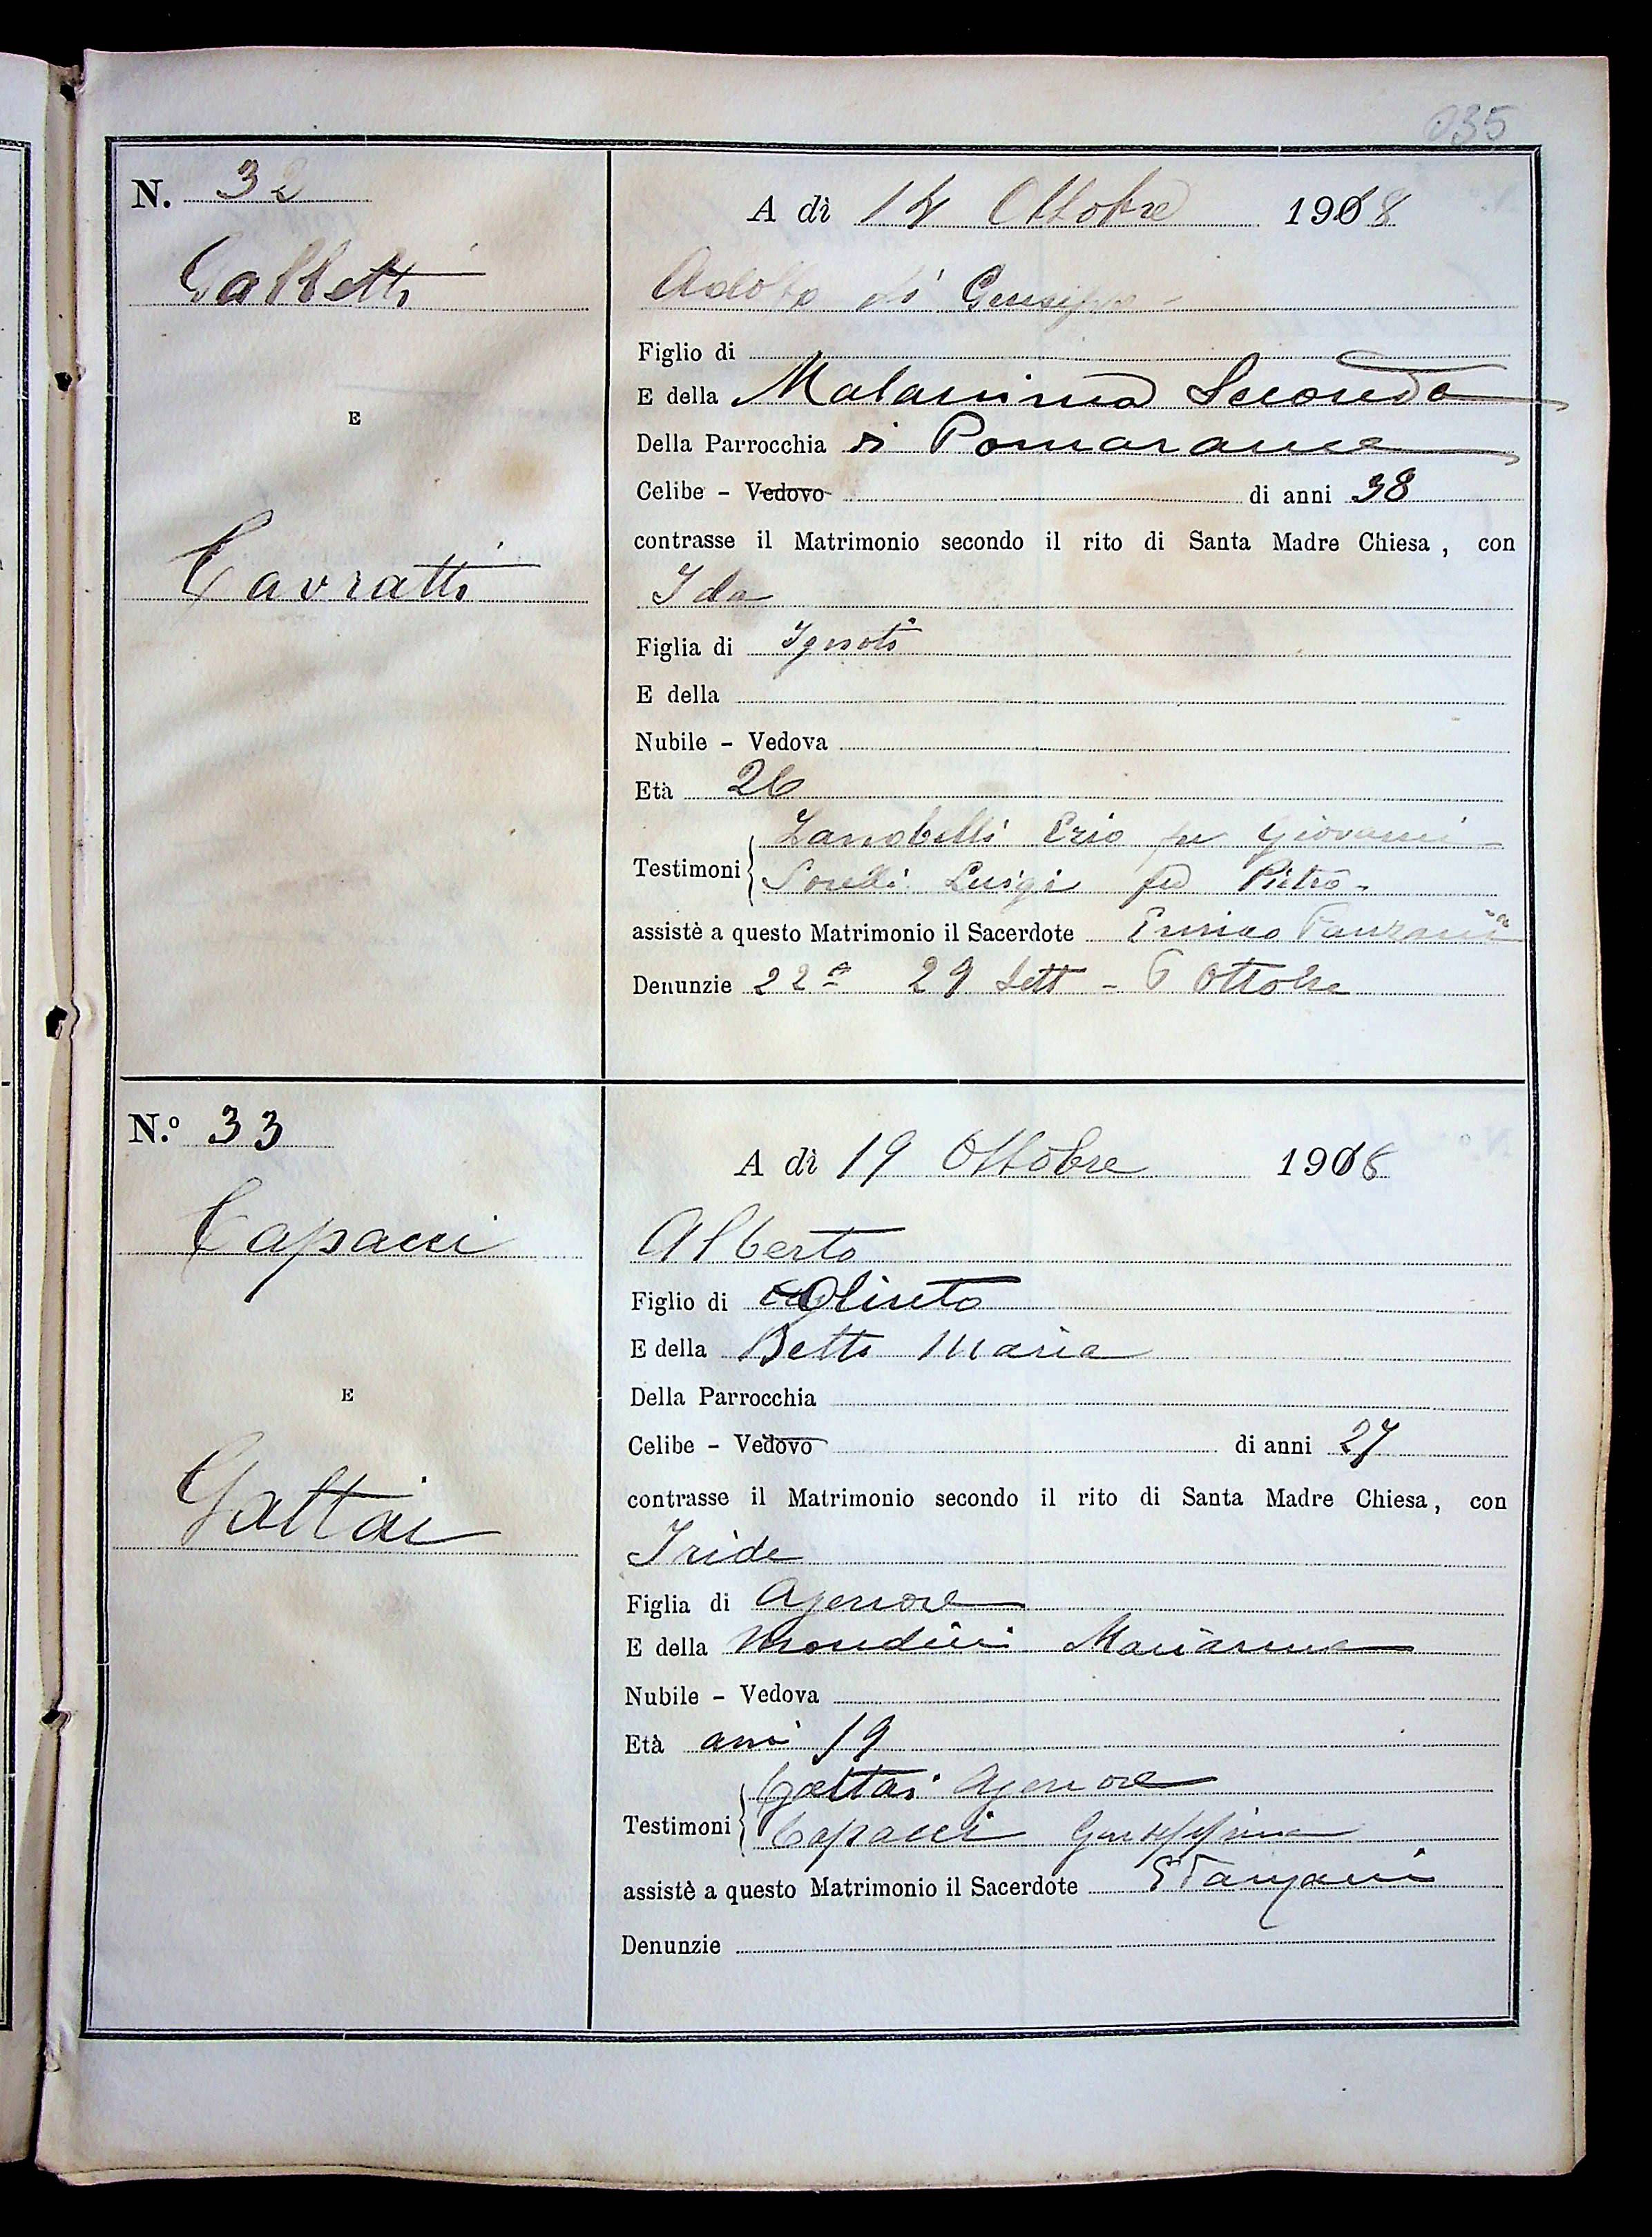 035
N. 32
A dì 14 Ottobre 1918
Galletti
Adolfo di Giuseppe -
Figlio di
E della Malanima Seconda
E
Della Parrocchia di Pomarance
Celibe - Vedovo di anni 38
contrasse il Matrimonio secondo il rito di Santa Madre Chiesa, con
Cavratti
Ida
Figlia di Ignoti
E della
Nubile - Vedova
Età 26
Testimoni Zanobelli Erio fu Giovanni
Sorelli Luigi fu Pietro -
assistè a questo Matrimonio il Sacerdote Enrico Fanzani
Denunzie 22 29 Sett - 6 Ottobre
N.º 33
A dì 19 Ottobre 1918
Capacci
Alberto
Figlio di Olinto
E della Betti Maria
E
Della Parrocchia
Celibe - Vedovo di anni 27
Gattai
contrasse il Matrimonio secondo il rito di Santa Madre Chiesa, con
Iride
Figlia di Agenore
E della Mondini Marianna
Nubile - Vedova
Età anni 19
Testimoni Gattai Agenore
Capacci Giuseppina
assistè a questo Matrimonio il Sacerdote E Fanzani
Denunzie